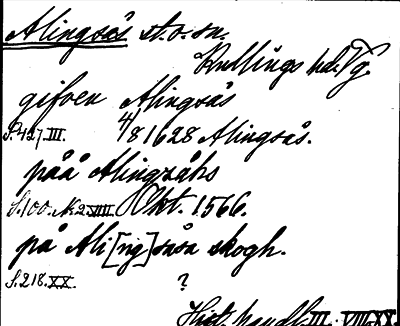 Alingsås st. o. sn.
Kullings hd. Vg.
gifven Alingsås
S. 427. III. 4/8 1628 Alingsås.
påå Alingzåhs
S. 100. N 2. VIII. Okt. 1566.
på Ali[ng]såsa skogh.
S. 218. XX. ?
Hist. handl. III. VIII. XX.